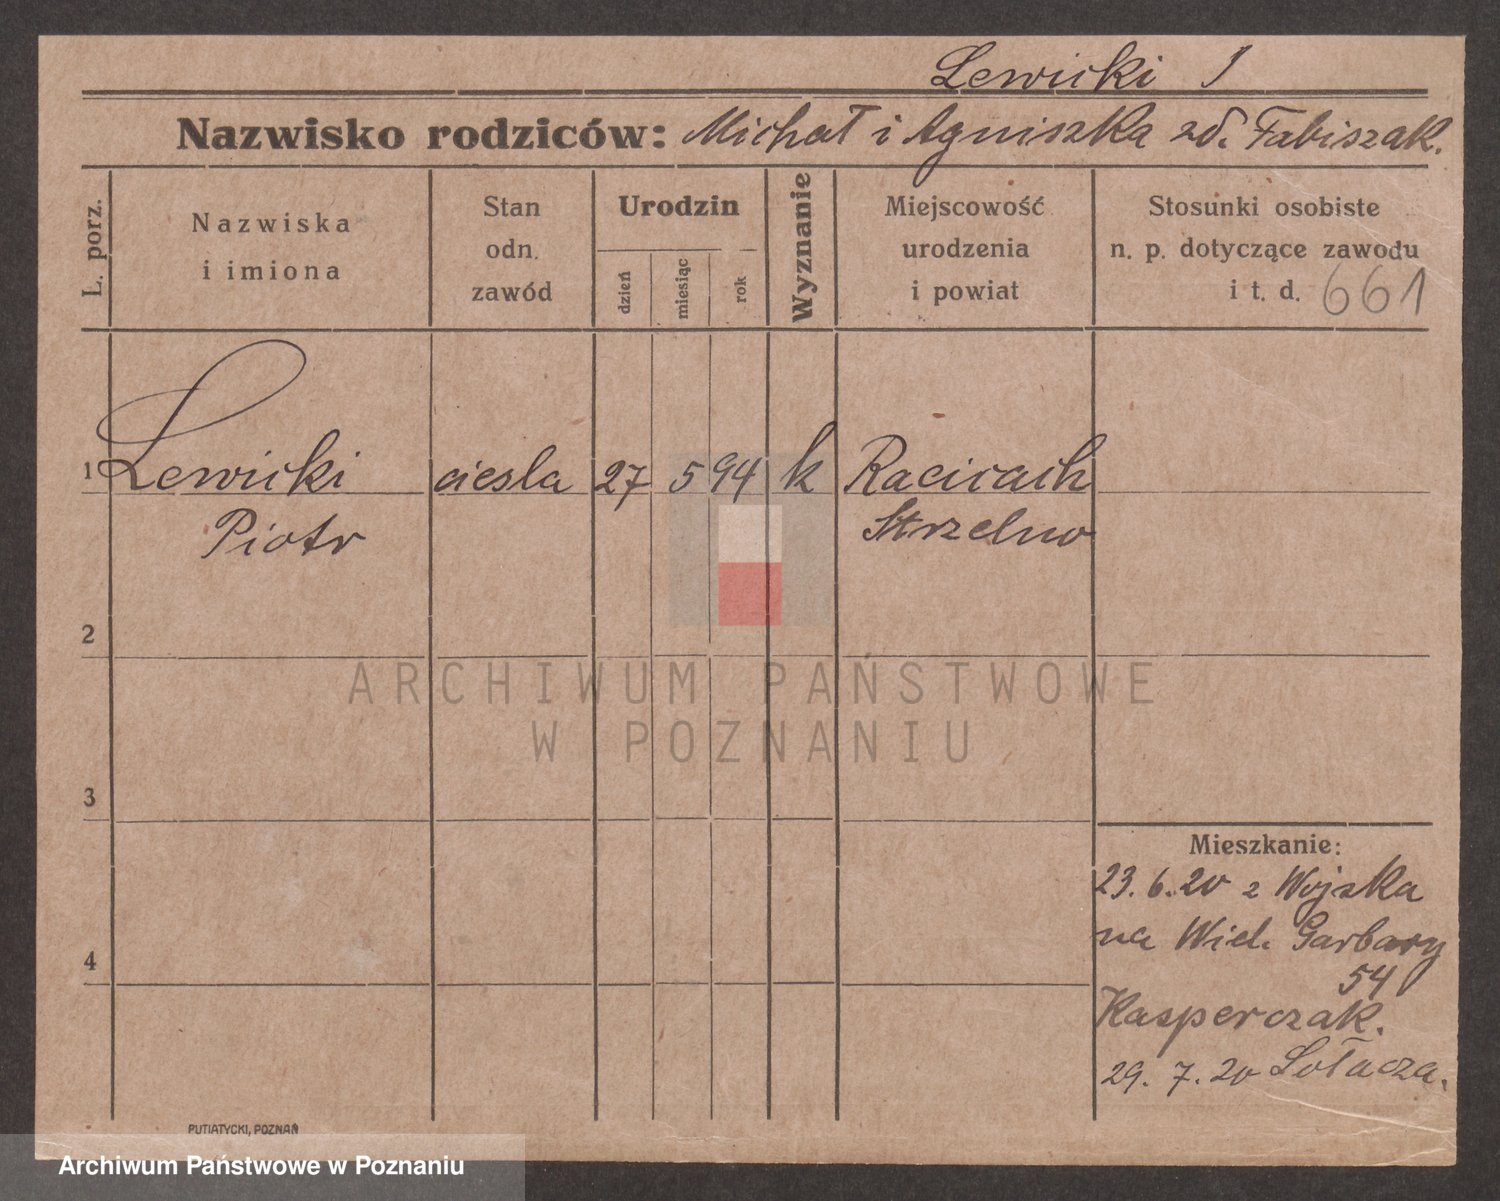 Lewicki J
Nazwisko rodziców: Michał i Agniszka zd. Fabiszak.
L. porz.
Nazwiska
i imiona
Stan
odn.
zawód
Urodzin
dzień
miesiąc
rok
Wyznanie
Miejscowość
urodzenia
i powiat
Stosunki osobiste
n. p. dotyczące zawodu
i t. d.
661
1 Lewicki ciesla 27 5 94 k Racicach
Piotr Strzelno
2
3
4
Mieszkanie:
23.6.20 z Wojska
na Wiel. Garbary
54
Kasperczak.
29.7.20 Sołacza.
PUTIATYCKI, POZNAŃ
ARCHIWUM PAŃSTWOWE
W POZNANIU
Archiwum Państwowe w Poznaniu